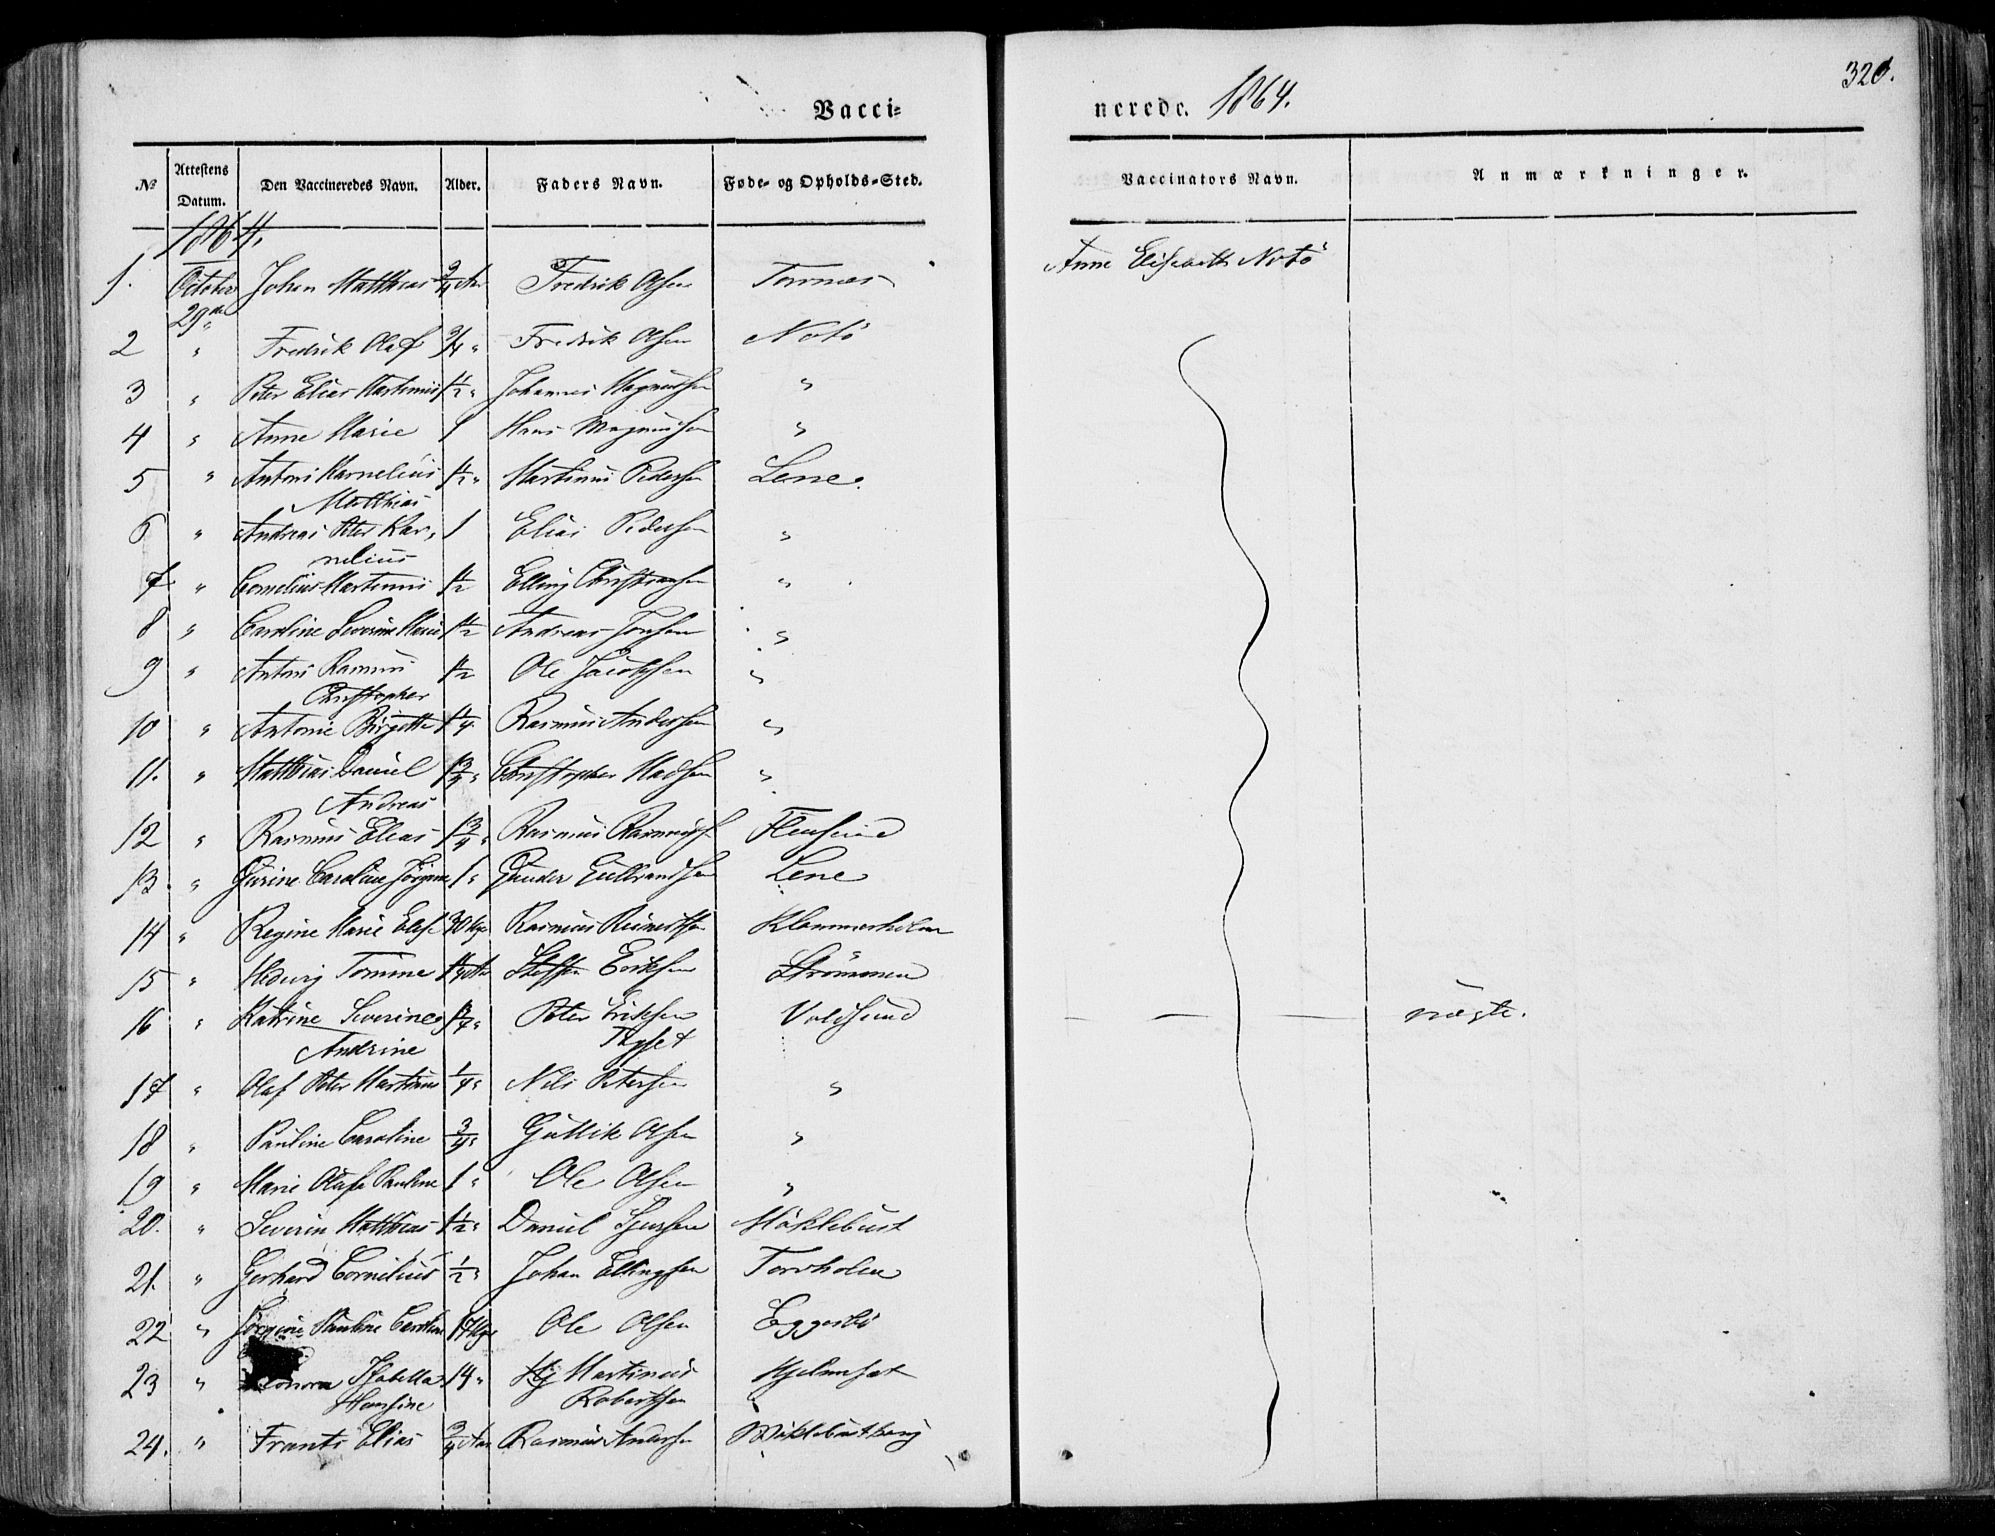 320.
Vacci-
nerede. 1864.
№ Attestens Datum. Den Vaccineredes Navn. Alder. Faders Navn. Føde- og Opholds-Sted. Vaccinators Navn. Anmærkninger.
1864.
1. October 29de Johan Matthias 3/4 Aar Fredrik Olsen Tornes Anne Elisabeth Notö
2 " Fredrik Olaf 3/4 " Fredrik Olsen Notö
3 " Peter Elias Martinus 1 1/2 " Johannes Magnussen "
4 " Anne Marie 1 Hans Magnussen "
5 " Anton Karnelius 1 1/2 " Martinus Pedersen Lene.
Matthias
6 " Andreas Peter Kar- 1 Elias Pedersen "
nelius
7 " Cornelius Martinus 1 1/2 Elling Christiansen "
8 " Caroline Severine Marie 1 1/2 Andreas Jonsen "
9 " Anton Rasmus 1 1/2 Ole Jacobsen "
Christopher
10 " Antonie Birgitte 1 1/4 Rasmus Andersen "
11. " Matthias Daniel 1 3/4 " Christopher Madsen "
Andreas
12 " Rasmus Elias 1 3/4 " Rasmus Rasmuss.
13. " Caroline Jörgine 1 " Gunder Gulbrandsen Lene
14 " Regine Marie Elise 30 Uger Rasmus Reinertsen
15 " Hedvig Tomine Steffen Eriksen Strömmen
16 " Katrine Severine Peter Eriksen Voldsund nægte.
Andrine
17 " Olaf Peter Martinus 1/4 " Nils Petersen "
18 " Pauline Caroline 3/4 " Guttik Olsen "
19 " Marie Olufa Pauline 1 " Ole Olsen "
20. " Severin Matthias 1 1/2 " Daniel Sjursen Möklebust
21. " Gerhard Cornelius 1/2 " Johan Ellingsen Torvholen
22 " Jörgine Pauline Caroline 17 Uger Ole Olsen Eggesbö
23 " Isabella 14 " Martinus Hjelmset
Hansine Robertsen
24. " Frants Elias 3/4 Aar Rasmus Andersen